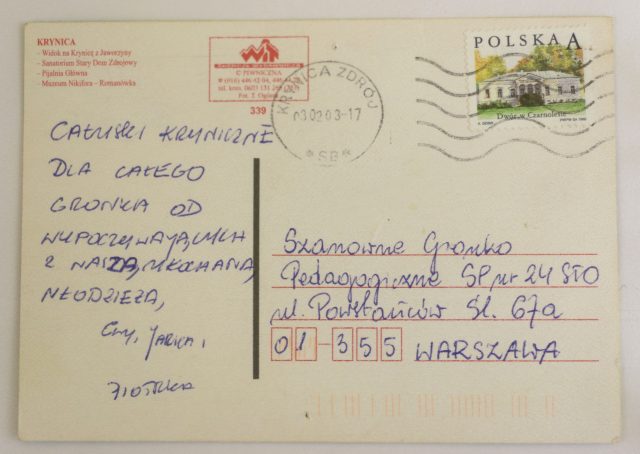 KRYNICA
- Widok na Krynicę z Jaworzyny
- Sanatorium Stary Dom Zdrojowy
- Pijalnia Główna
- Muzeum Nikifora – Romanówka
PIWNICZNA
Fot. T. Ogórek
339
KRYNICA ZDRÓJ
030203-17
* SB *
POLSKA A
Dwór w Czarnolesie
CAŁUSKI KRYNICZNE
DLA CAŁEGO
GRONKA OD
WYPOCZYWAJĄCYCH
Z NASZĄ, UKOCHANĄ,
MŁODZIEŻĄ,
Szanowne Gronko
Pedagogiczne SP nr 24 STO
ul. Powstańców Śl. 67a
01-355 WARSZAWA